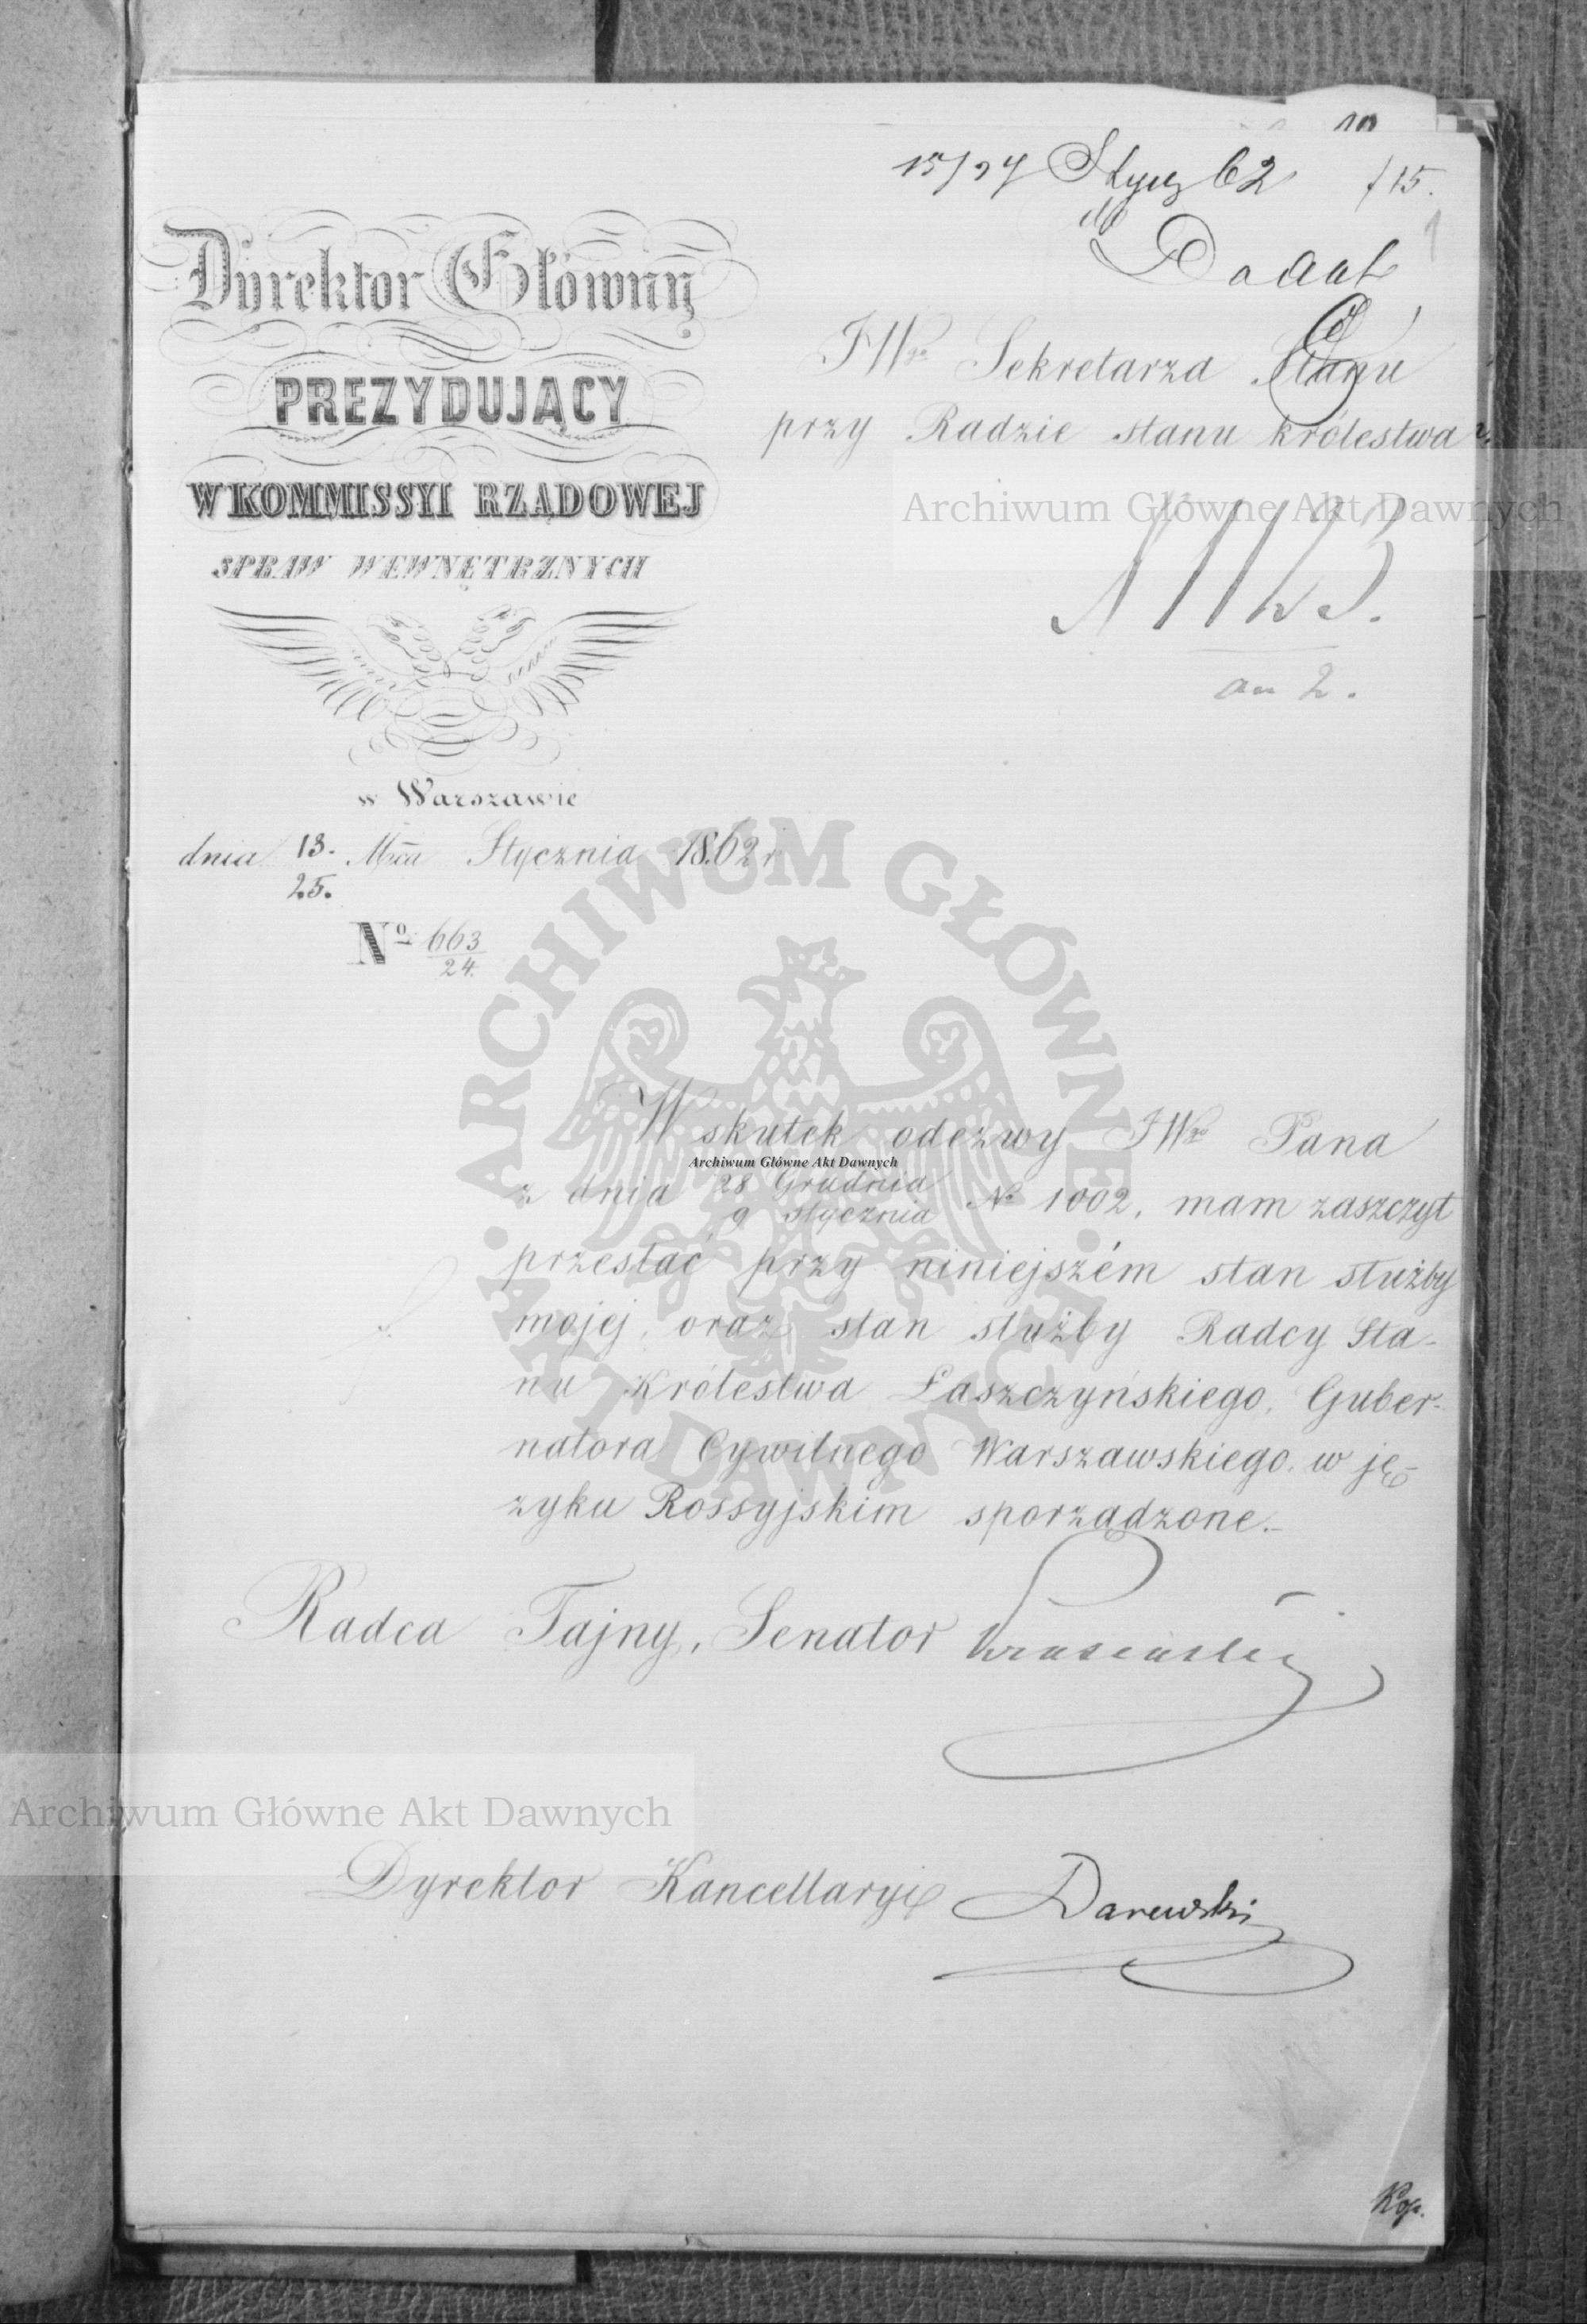 15/27 Stycz 62 f 15.
Do akt
Dyrektor Główny
PREZYDUJĄCY
W KOMMISSYI RZĄDOWEJ
SPRAW WEWNĘTRZNYCH
w Warszawie
dnia 13./25. Mca Stycznia 1862 r
No 663/24.
JWgo Sekretarza Stanu
przy Radzie stanu królestwa
N 1123.
an 2.
Wskutek odezwy JWgo Pana
z dnia 28 Grudnia/9 stycznia No 1002, mam zaszczyt
przesłać przy niniejszém stan służby
mojej, oraz stan służby Radcy Sta-
nu Królestwa Łaszczyńskiego, Guber-
natora Cywilnego Warszawskiego, w ję-
zyku Rossyjskim sporządzone.-
Radca Tajny, Senator
Dyrektor Kancellaryi Darewski
Kop.
Archiwum Główne Akt Dawnych
Archiwum Główne Akt Dawnych
Archiwum Główne Akt Dawnych
ARCHIWUM GŁÓWNE AKT DAWNYCH